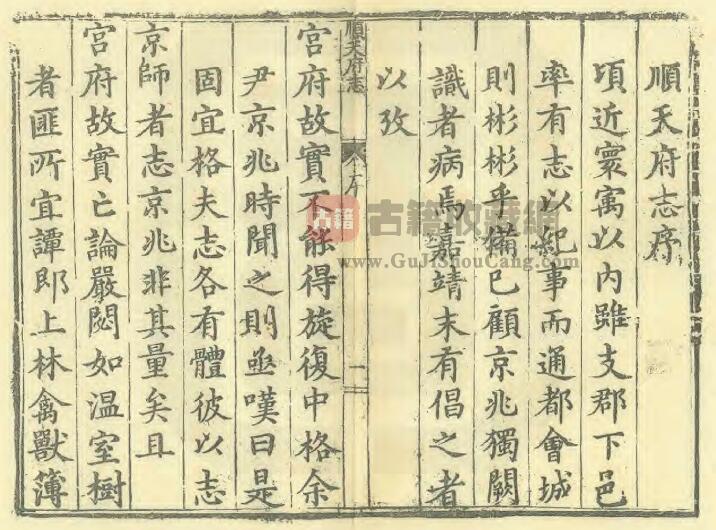 順天府志序
頃近寰寓以内雖支郡下邑
率有志以紀事而通都會城
則彬彬乎備已顧京兆獨闕
識者病焉嘉靖末有倡之者
以攷
順天府志
序
一
宮府故實不能得旋復中格余
尹京兆時聞之則亟嘆曰是
固宜格夫志各有體彼以志
京師者志京兆非其量矣且
宮府故實亡論嚴閟如温室樹
者匪所宜譚即上林禽獸簿
古籍
古籍收藏網
www.GuJiShouCang.com